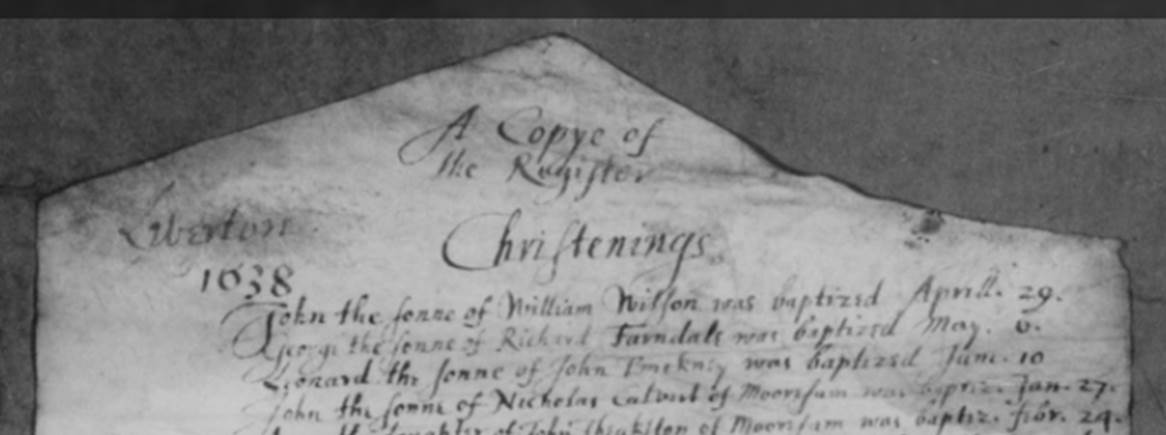 A Copye of
the Register
Liverton
Christenings
1638
John the sonne of William Wilson was baptized Aprill. 29.
George the sonne of Richard Farndale was baptized May. 6.
Leonard the sonne of John was baptized June. 10
John the sonne of Nicholas Calvert of Moorsam was baptiz. Jan. 27.
daughter of John of Moorsam was baptiz. febr. 24.